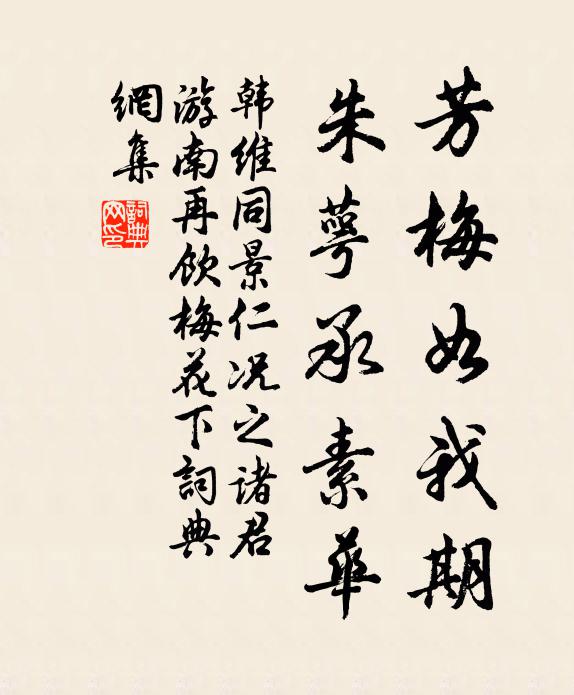 芳梅如我期
朱萼承素華
韩維同景仁况之诸君
游南再飲梅花下詞典
網集
詞典網印